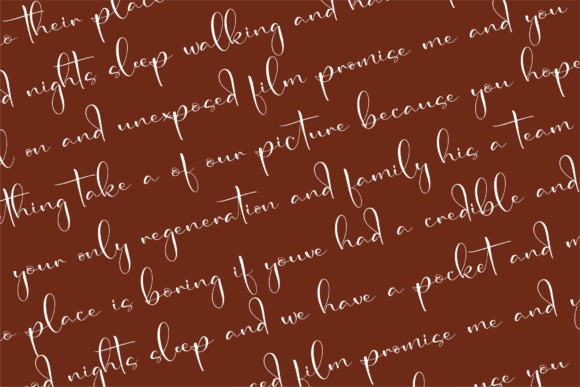 o their place
d nights sleep walking and ha
l on and unexposed film promise me and you
thing take a of our picture because you hope
your only regeneration and family his a team
o place is boring if youve had a credible and
od nights sleep and we have a pocket and m
sed film promise me and y
cause you